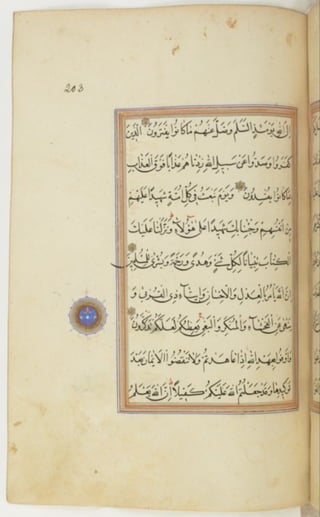 203
إلى الله يومئذ السلم وضل عنهم ما كانوا يفترون الذين
كفروا وصدوا عن سبيل الله زدناهم عذابا فوق العذاب
بما كانوا يفسدون ويوم نبعث في كل أمة شهيدا عليهم
من أنفسهم وجئنا بك شهيدا على هؤلاء ونزلنا عليك
الكتاب تبيانا لكل شيء وهدى ورحمة وبشرى للمسلمين
إن الله يأمر بالعدل والإحسان وإيتاء ذي القربى و
ينهى عن الفحشاء والمنكر والبغي يعظكم لعلكم تذكرون
وأوفوا بعهد الله إذا عاهدتم ولا تنقضوا الأيمان بعد
توكيدها وقد جعلتم الله عليكم كفيلا إن الله يعلم